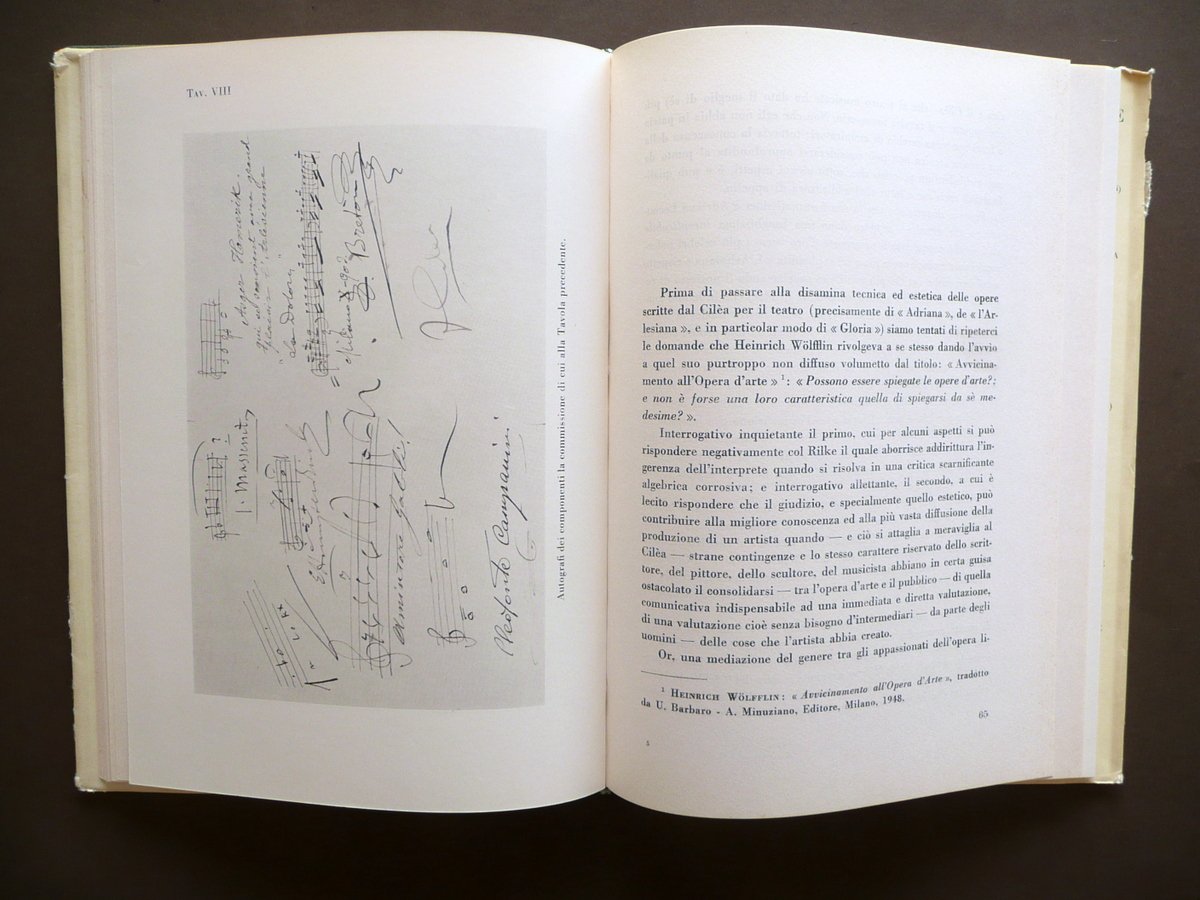 Tav. VIII
Asger Hamerik.
qui se souvient avec grand
plaisir
"la Dolores"
Milano
Breton
J. Massenet
Amintore Galli
Cleofonte Campanini
Autografi dei componenti la commissione di cui alla Tavola precedente.
Prima di passare alla disamina tecnica ed estetica delle opere
scritte dal Cilèa per il teatro (precisamente di « Adriana », de « l'Ar-
lesiana », e in particolar modo di « Gloria ») siamo tentati di ripeterci
le domande che Heinrich Wölfflin rivolgeva a se stesso dando l'avvio
a quel suo purtroppo non diffuso volumetto dal titolo: « Avvicina-
mento all'Opera d'arte » ¹: « Possono essere spiegate le opere d'arte?;
e non è forse una loro caratteristica quella di spiegarsi da sè me-
desime? ».
Interrogativo inquietante il primo, cui per alcuni aspetti si può
rispondere negativamente col Rilke il quale aborrisce addirittura l'in-
gerenza dell'interprete quando si risolva in una critica scarnificante
algebrica corrosiva; e interrogativo allettante, il secondo, a cui è
lecito rispondere che il giudizio, e specialmente quello estetico, può
contribuire alla migliore conoscenza ed alla più vasta diffusione della
produzione di un artista quando — e ciò si attaglia a meraviglia al
Cilèa — strane contingenze e lo stesso carattere riservato dello scrit-
tore, del pittore, dello scultore, del musicista abbiano in certa guisa
ostacolato il consolidarsi — tra l'opera d'arte e il pubblico — di quella
comunicativa indispensabile ad una immediata e diretta valutazione,
di una valutazione cioè senza bisogno d'intermediari — da parte degli
uomini — delle cose che l'artista abbia creato.
Or, una mediazione del genere tra gli appassionati dell'opera li-
¹ Heinrich Wölfflin: « Avvicinamento all'Opera d'Arte », tradotto
da U. Barbaro - A. Minuziano, Editore, Milano, 1948.
65
5